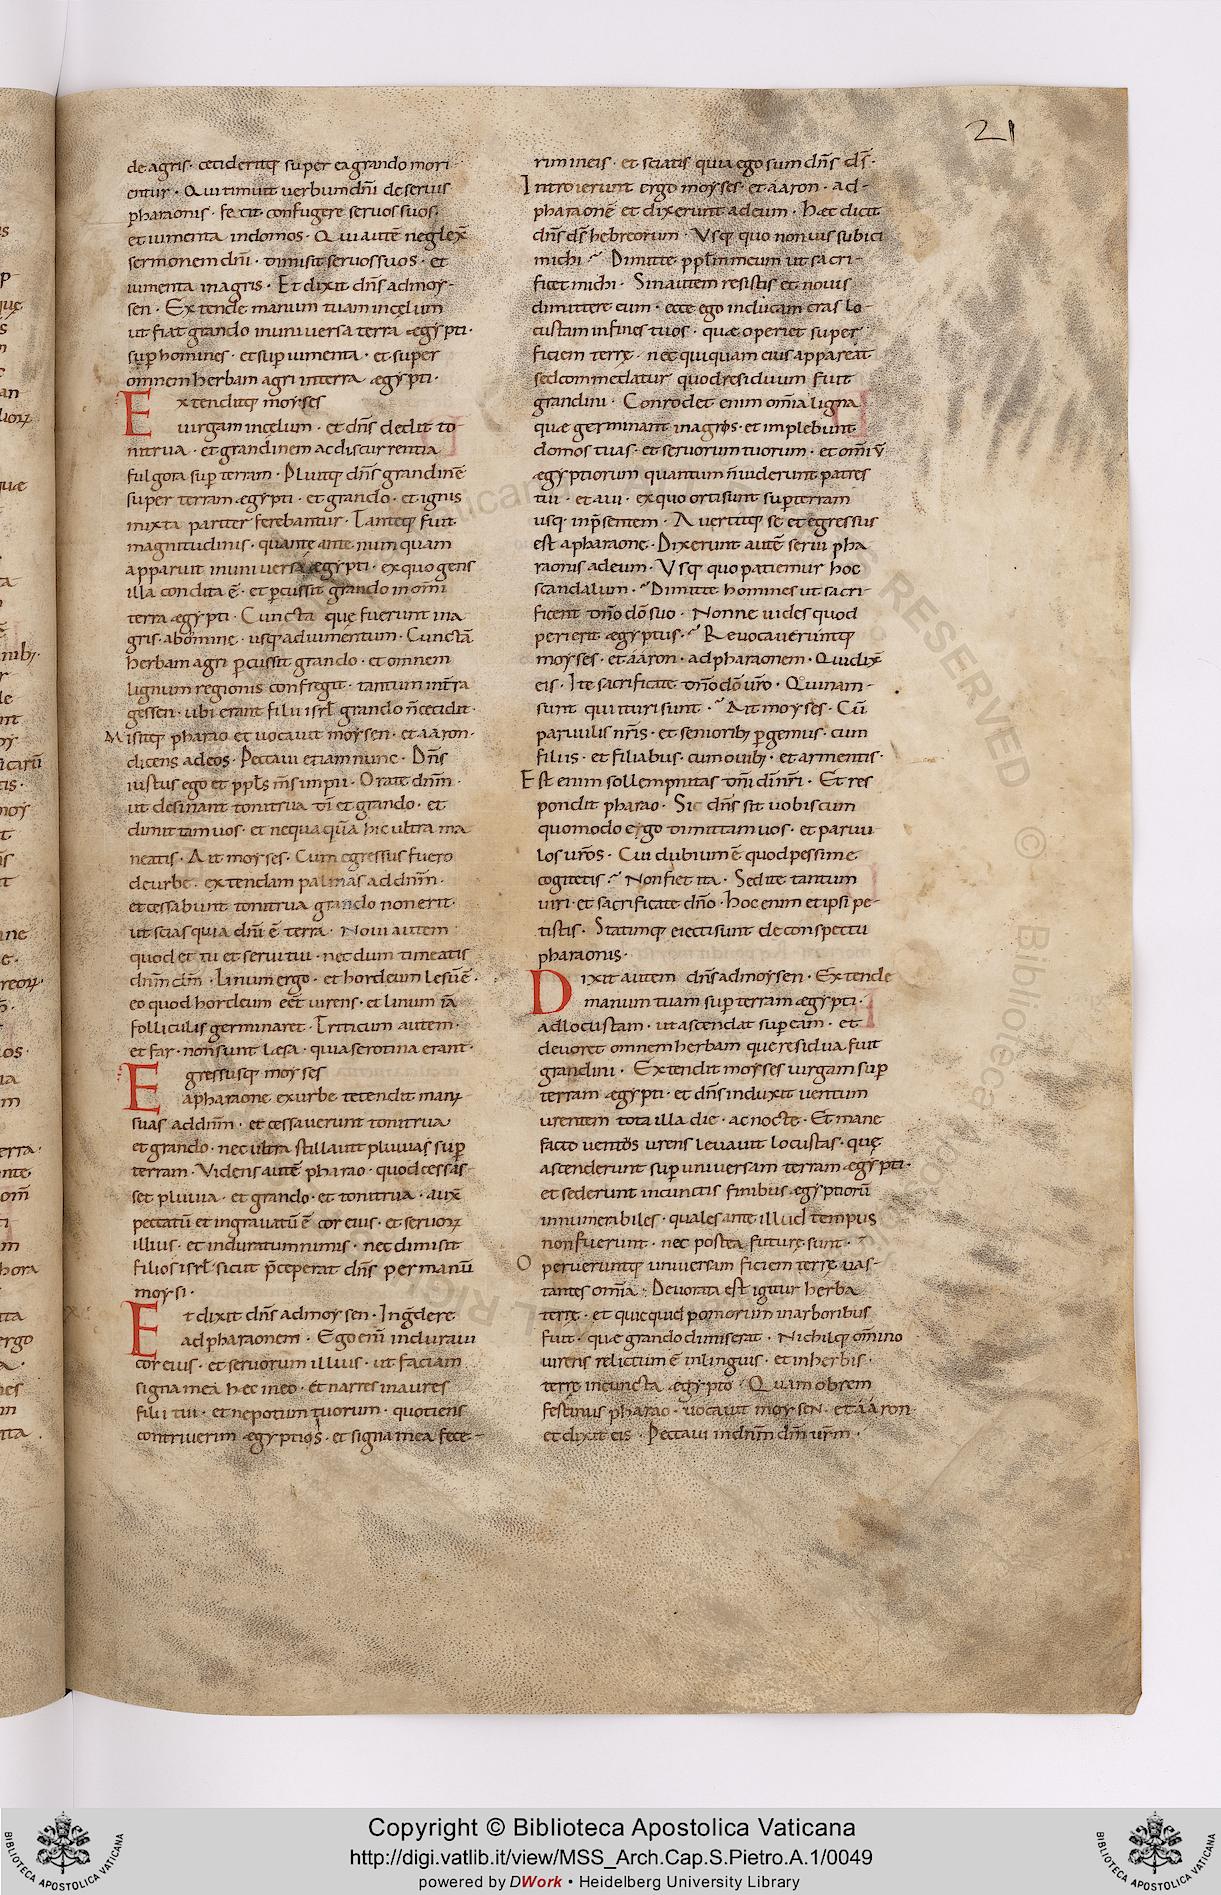 21
de agris · cecideritq; super ea grando mori
entur · Qui timuit uerbum dñi de seruis
pharaonis · fecit confugere seruos suos
et iumenta in domos · Qui autē neglex̄
sermonem dñi · dimisit seruos suos · et
iumenta in agris · Et dixit dñs ad moy-
sen · Extende manum tuam in cęlum
ut fiat grando in uniuersa terra ęgypti ·
sup homines · et sup iumenta · et super
omnem herbam agri in terra ægypti ·
Extenditq; moyses
uirgam in cęlum · et dñs dedit to-
nitrua · et grandinem ac discurrentia
fulgora sup terram · Pluitq; dñs grandinē
super terram ęgypti · et grando · et ignis
mixta pariter ferebantur · Tanteq; fuit
magnitudinis · quante ante numquam
apparuit in uniuersa ægypti · ex quo gens
illa condita ē · et pcussit grando in om̄i
terra ęgypti · Cuncta que fuerunt in a
gris · ab omine · usq; ad iumentum · Cunctā
herbam agri pcussit grando · et omnem
lignum regionis confregit · tantum in t̄ra
gessen · ubi erant filii isrł grando n̄ cecidit ·
Misitq; pharao et uocauit moysen · et aaron ·
dicens ad eos · Peccaui etiam nunc · Dñs
iustus ego et ppls m̄s impii · Orate dnm̄ ·
ut desinant tonitrua dī et grando · et
dimittam uos · et nequaquā hic ultra ma
neatis · Ait moyses · Cum egressus fuero
de urbe · extendam palmas ad dnm̄ ·
et cessabunt tonitrua grando non erit ·
ut scias quia dñi ē terra · Noui autem
quod et tu et serui tui · nec dum timeatis
dnm̄ dm̄ · Linum ergo · et hordeum lesū ē ·
eo quod hordeum eēt uirens · et linum iā
folliculis germinaret · Triticum autem ·
et far · non sunt lesa · quia serotina erant ·
Egressusq; moyses
a pharaone ex urbe tetendit manꝰ
suas ad dnm̄ · et cessauerunt tonitrua
et grando · nec ultra stillauit pluuias sup
terram · Videns autē pharao · quod cessas-
set pluuia · et grando · et tonitrua · aux̄
peccatū et ingrauatū ē cor eius · et seruoꝝ
illius · et induratum nimis · nec dimisit
filios isrł sicut p̄ceperat dñs per manū
moysi ·
Et dixit dñs ad moysen · Ingr̄dere
ad pharaonem · Ego eni̅ induraui
cor eius · et seruorum illius · ut faciam
signa mea hec in eo · Et narres in aures
filii tui · et nepotum tuorum · quotiens
contriuerim ęgyptios · et signa mea fece-
rim in eis · et sciatis quia ego sum dñs ds̄ ·
Introierunt ergo moyses · et aaron · ad-
pharaonē et dixerunt ad eum · Hæc dicit
dñs ds̄ hebreorum · Vsq; quo non uis subici
michi · Dimitte pplm̄ meum ut sacri-
ficet michi · Sin autem resistis et non uis
dimittere eum · ecce ego inducam cras lo-
custam in fines tuos · quæ operiet super
ficiem terrę · nec quiquam eius appareat
sed commedatur quod residuum fuit
grandini · Conrodet enim om̄ia ligna
que germinant in agris · et implebunt
domos tuas · et seruorum tuorum · et om̄iū
ęgyptiorum quantum n̄ uiderunt patres
tui · et aui · ex quo orti sunt sup terram
usq; in p̄sentem · Auertitq; se et egressus
est a pharaone · Dixerunt autē serui pha
raonis ad eum · Vsq; quo patiemur hoc
scandalum · Dimitte homines ut sacri-
ficent dn̄o dō suo · Nonne uides quod
perierit ægyptus · Reuocaueruntq;
moyses · et aaron · ad pharaonem · Qui dix̄
eis · Ite sacrificate dn̄o dō uro · Quinam-
sunt qui ituri sunt · Ait moyses · Cū
paruulis nr̄is · et seniorib; pgemus · cum
filiis · et filiabus · cum ouib; · et armentis ·
Est enim sollempnitas dn̄i di nr̄i · Et res
pondit pharao · Sic dñs sit uobiscum
quomodo ergo dimittam uos · et paruu
los ur̄os · Cui dubium ē quod pessime
cogitetis · Non fiet ita · Sed ite tantum
uiri · et sacrificate dn̄o · hoc enim et ipsi pe-
tistis · Statimq; eiecti sunt de conspectu
pharaonis ·
Dixit autem dñs ad moysen · Extende
manum tuam sup terram ægypti ·
ad locustam · ut ascendat sup eam · et
deuoret omnem herbam que residua fuit
grandini · Extendit moyses uirgam sup
terram ægypti · et dñs induxit uentum
urentem tota illa die · ac nocte · Et mane
facto uentus urens leuauit locustas · quę
ascenderunt sup uniuersam terram ęgypti ·
et sederunt in cunctis finibus ægyptiorū
innumerabiles · quales ante illud tempus
non fuerunt · nec postea futurę sunt ·
Operueruntq; uniuersam ficiem terrę uas-
tantes om̄ia · Deuorata est igitur herba
terrę · et quicquid pomorum in arboribus
fuit · que grando dimiserat · Nichilq; om̄ino
uirens relictum ē in linguis · et in herbis ·
terrę in cuncta ęgypto · Quam obrem
festinus pharao · uocauit moysen · et aaron
et dixit eis · Peccaui in dnm̄ dm̄ ur̄m ·
Copyright © Biblioteca Apostolica Vaticana
http://digi.vatlib.it/view/MSS_Arch.Cap.S.Pietro.A.1/0049
powered by DWork • Heidelberg University Library
BIBLIOTECA APOSTOLICA VATICANA
BIBLIOTECA APOSTOLICA VATICANA